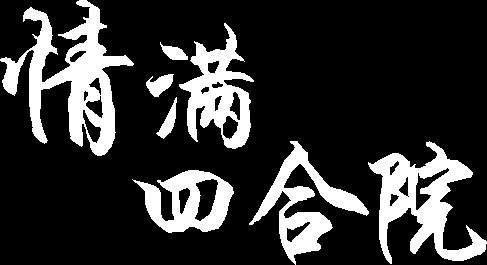 情满
四合院